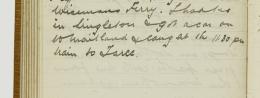 Wisemans Ferry. I had to
in Singleton & got a car on
to Maitland & caught the 11.30 pm
train to Taree.